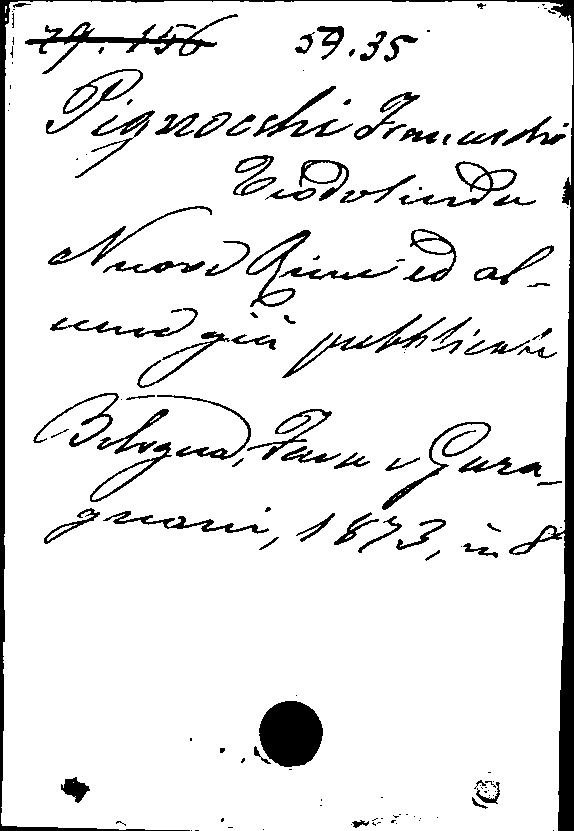 79.156 59.35
Pignocchi Franceschi
Teodolinda
Nuove Rime ed al-
cune già pubblicate
Bologna, Fava e Gara-
gnani, 1873, in 8°